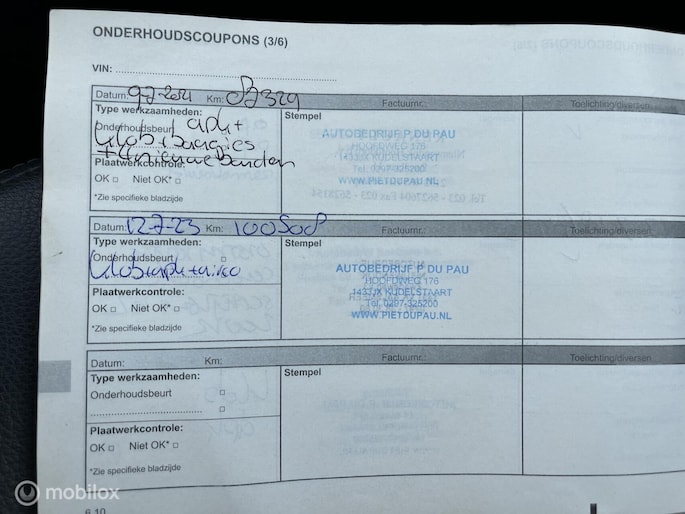 ONDERHOUDSCOUPONS (3/6)
VIN:
Datum: Km: Factuurnr.: Toelichting/diversen
Type werkzaamheden: Stempel
Onderhoudsbeurt apk+
+ 4 nieuwe Banden
Plaatwerkcontrole:
OK Niet OK*
*Zie specifieke bladzijde
AUTOBEDRIJF P DU PAU
HOOFDWEG 176
1433JX KUDELSTAART
Tel. 0297-325200
WWW.PIETDUPAU.NL
Datum: 12-7-23 Km: 100508 Factuurnr.: Toelichting/diversen
Type werkzaamheden: Stempel
Onderhoudsbeurt
Plaatwerkcontrole:
OK Niet OK*
*Zie specifieke bladzijde
AUTOBEDRIJF P DU PAU
HOOFDWEG 176
1433JX KUDELSTAART
Tel. 0297-325200
WWW.PIETDUPAU.NL
Datum: Km: Factuurnr.: Toelichting/diversen
Type werkzaamheden: Stempel
Onderhoudsbeurt
Plaatwerkcontrole:
OK Niet OK*
*Zie specifieke bladzijde
6.10
mobilox